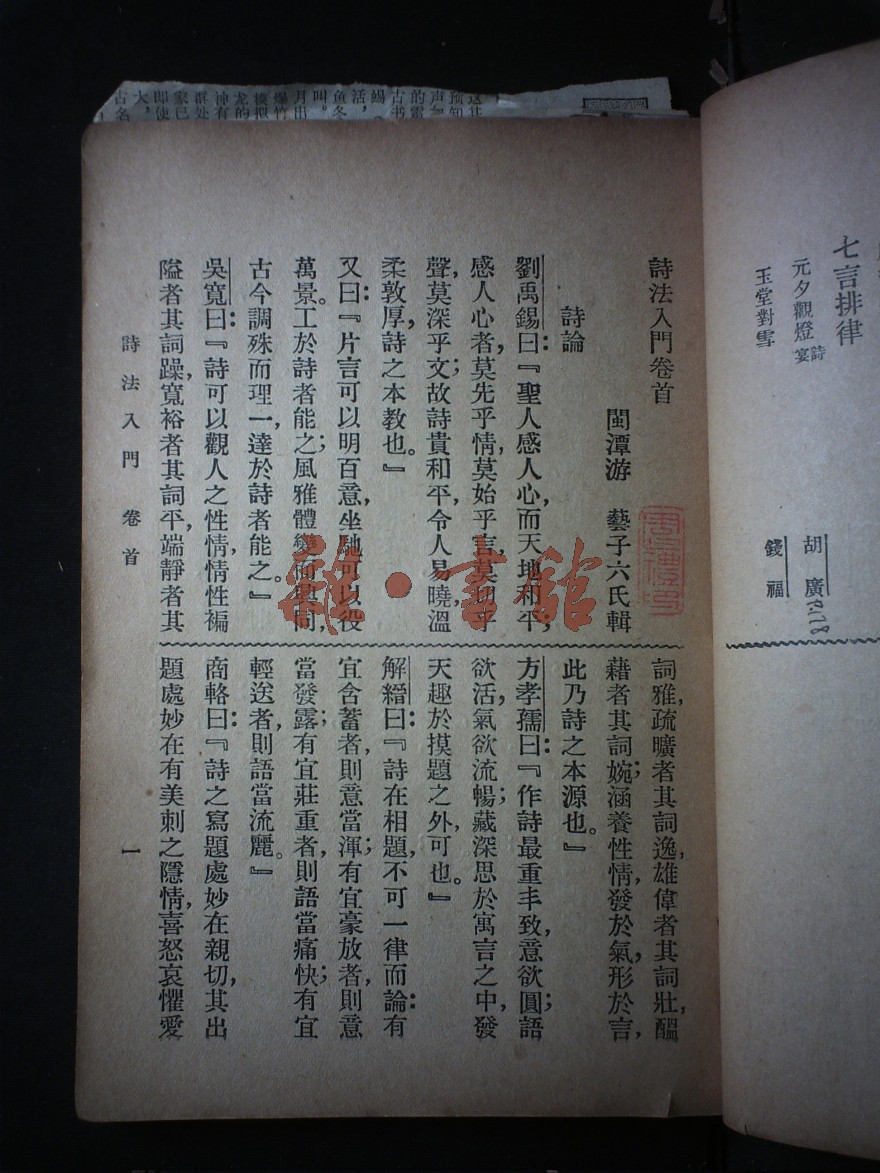 七言排律
元夕觀燈
詩
宴
胡廣
玉堂對雪
錢福
詩法入門卷首
閩潭游　藝子六氏輯
詩論
劉禹錫曰：『聖人感人心，而天地和平，
感人心者，莫先乎情，莫始乎言，莫切乎
聲，莫深乎文；故詩貴和平，令人易曉，溫
柔敦厚，詩之本教也。』
又曰：『片言可以明百意，坐馳可以役
萬景。工於詩者能之；風雅體變而興同，
古今調殊而理一，達於詩者能之。』
吳寬曰：『詩可以觀人之性情，情性褊
隘者其詞躁，寬裕者其詞平，端靜者其
詞雅，疏曠者其詞逸，雄偉者其詞壯，醞
藉者其詞婉；涵養性情，發於氣，形於言，
此乃詩之本源也。』
方孝孺曰：『作詩最重丰致，意欲圓；語
欲活，氣欲流暢；藏深思於寓言之中，發
天趣於摸題之外，可也。』
解縉曰：『詩在相題，不可一律而論：有
宜含蓄者，則意當渾；有宜豪放者，則意
當發露；有宜莊重者，則語當痛快；有宜
輕送者，則語當流麗。』
商輅曰：『詩之寫題處妙在親切，其出
題處妙在有美刺之隱情，喜怒哀懼愛
詩法入門　卷首　一
雜·書館